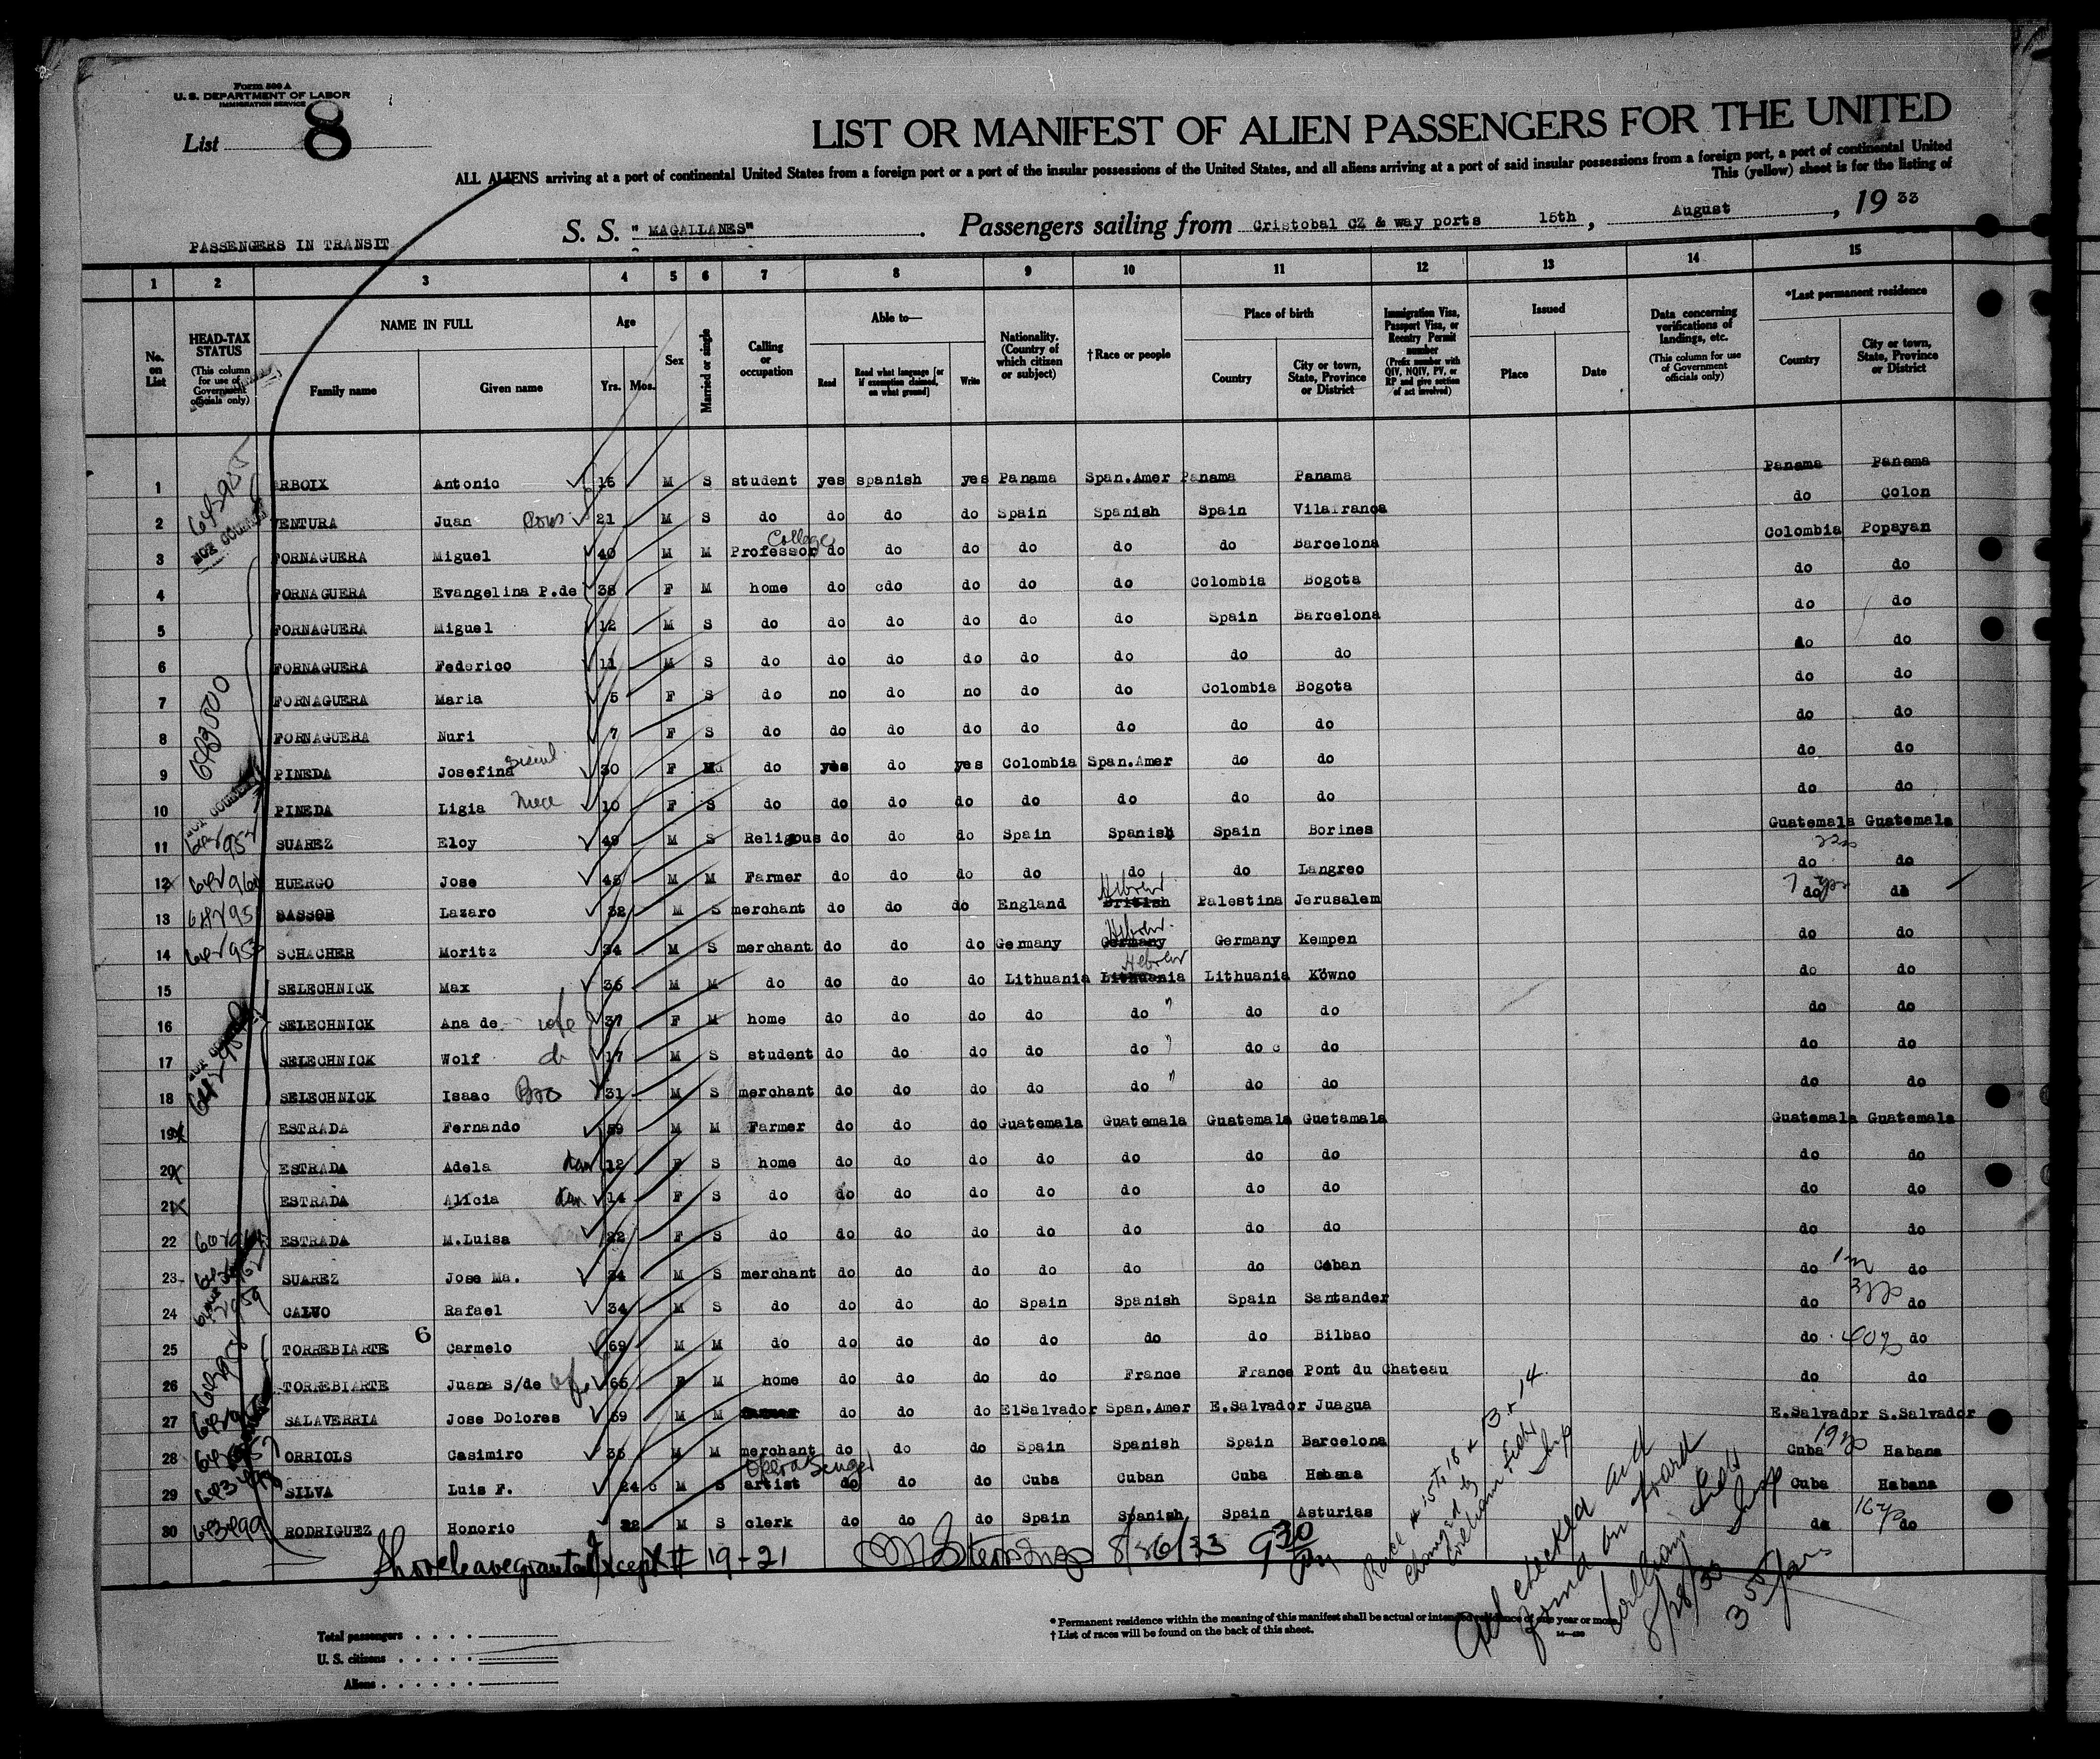 Form 500 A
U. S. DEPARTMENT OF LABOR
IMMIGRATION SERVICE
List 8
LIST OR MANIFEST OF ALIEN PASSENGERS FOR THE UNITED
ALL ALIENS arriving at a port of continental United States from a foreign port or a port of the insular possessions of the United States, and all aliens arriving at a port of said insular possessions from a foreign port, a port of continental United
This (yellow) sheet is for the listing of
PASSENGERS IN TRANSIT
S. S. "MAGALLANES". Passengers sailing from Cristobal CZ & way ports 15th, August, 1933
1 2 3 4 5 6 7 8 9 10 11 12 13 14 15
No. on List
HEAD-TAX STATUS (This column for use of Government officials only)
NAME IN FULL
Family name Given name
Age Yrs. Mos.
Sex
Married or single
Calling or occupation
Able to—
Read Read what language [or if exemption claimed, on what ground] Write
Nationality. (Country of which citizen or subject)
†Race or people
Place of birth
Country City or town, State, Province or District
Immigration Visa, Passport Visa, or Reentry Permit number (Prefix number with QIV, NQIV, PV, or RP and give section of act involved)
Issued
Place Date
Data concerning verifications of landings, etc. (This column for use of Government officials only)
*Last permanent residence
Country City or town, State, Province or District
1 RBOIX Antonio 15 M S student yes spanish yes Panama Span.Amer Panama Panama Panama Panama
2 VENTURA Juan 21 M S do do do do Spain Spanish Spain Vilafranca do Colon
3 FORNAGUERA Miguel 40 M M College Professor do do do do do do Barcelona Colombia Popayan
4 FORNAGUERA Evangelina P.de 38 F M home do cdo do do do Colombia Bogota do do
5 FORNAGUERA Miguel 12 M S do do do do do do Spain Barcelona do do
6 FORNAGUERA Federico 11 M S do do do do do do do do do do
7 FORNAGUERA Maria 5 F S do no do no do do Colombia Bogota do do
8 FORNAGUERA Nuri 7 F S do do do do do do do do do do
9 PINEDA Josefina 30 F do yes do yes Colombia Span.Amer do do do do
10 PINEDA Ligia Niece 10 F S do do do do do do do do do do
11 SUAREZ Eloy 49 M S Religous do do do Spain Spanish Spain Borines Guatemala Guatemala
12 HUERGO Jose 45 M M Farmer do do do do do do Langreo do do
13 SASSON Lazaro 32 M S merchant do do do England British Hebrew Palestina Jerusalem do do
14 SCHACHER Moritz 34 M S merchant do do do Germany Germany Hebrew Germany Kempen do do
15 SELECHNICK Max 36 M M do do do do Lithuania Lithuania Hebrew Lithuania Kowno do do
16 SELECHNICK Ana de wife 37 F M home do do do do do " do do do do
17 SELECHNICK Wolf 17 M S student do do do do do " do do do do
18 SELECHNICK Isaac Bro 31 M S merchant do do do do do " do do do do
19 ESTRADA Fernando 59 M M Farmer do do do Guatemala Guatemala Guatemala Guetamala Guatemala Guatemala
20 ESTRADA Adela dau 12 F S home do do do do do do do do do
21 ESTRADA Alicia dau 14 F S do do do do do do do do do do
22 ESTRADA M.Luisa 22 F S do do do do do do do do do do
23 SUAREZ Jose Ma. 24 M S merchant do do do do do do Coban do do
24 CALVO Rafael 34 M S do do do do Spain Spanish Spain Santander do do
25 TORREBIARTE 6 Carmelo 69 M M do do do do do do do Bilbao do do
26 TORREBIARTE Juana S/de 65 F M home do do do do France France Pont du Chateau do do
27 SALAVERRIA Jose Dolores 39 M M do do do ElSalvador Span.Amer E.Salvador Juagua E.Salvador S.Salvador
28 ORRIOLS Casimiro 35 M M merchant do do do Spain Spanish Spain Barcelona Cuba Habana
29 SILVA Luis F. 24 M S Opera Singer artist do do do Cuba Cuban Cuba Habana Cuba Habana
30 643499 RODRIGUEZ Honorio 22 M S clerk do do do Spain Spanish Spain Asturias do do
Shore leave granted except # 19-21 8/26/33 9 30 Pm
Race # 15 to 18 & 13 & 14 changed by
All checked and found on board
8/28/33
* Permanent residence within the meaning of this manifest shall be actual or intended residence of one year or more.
† List of races will be found on the back of this sheet.
Total passengers
U. S. citizens
Aliens